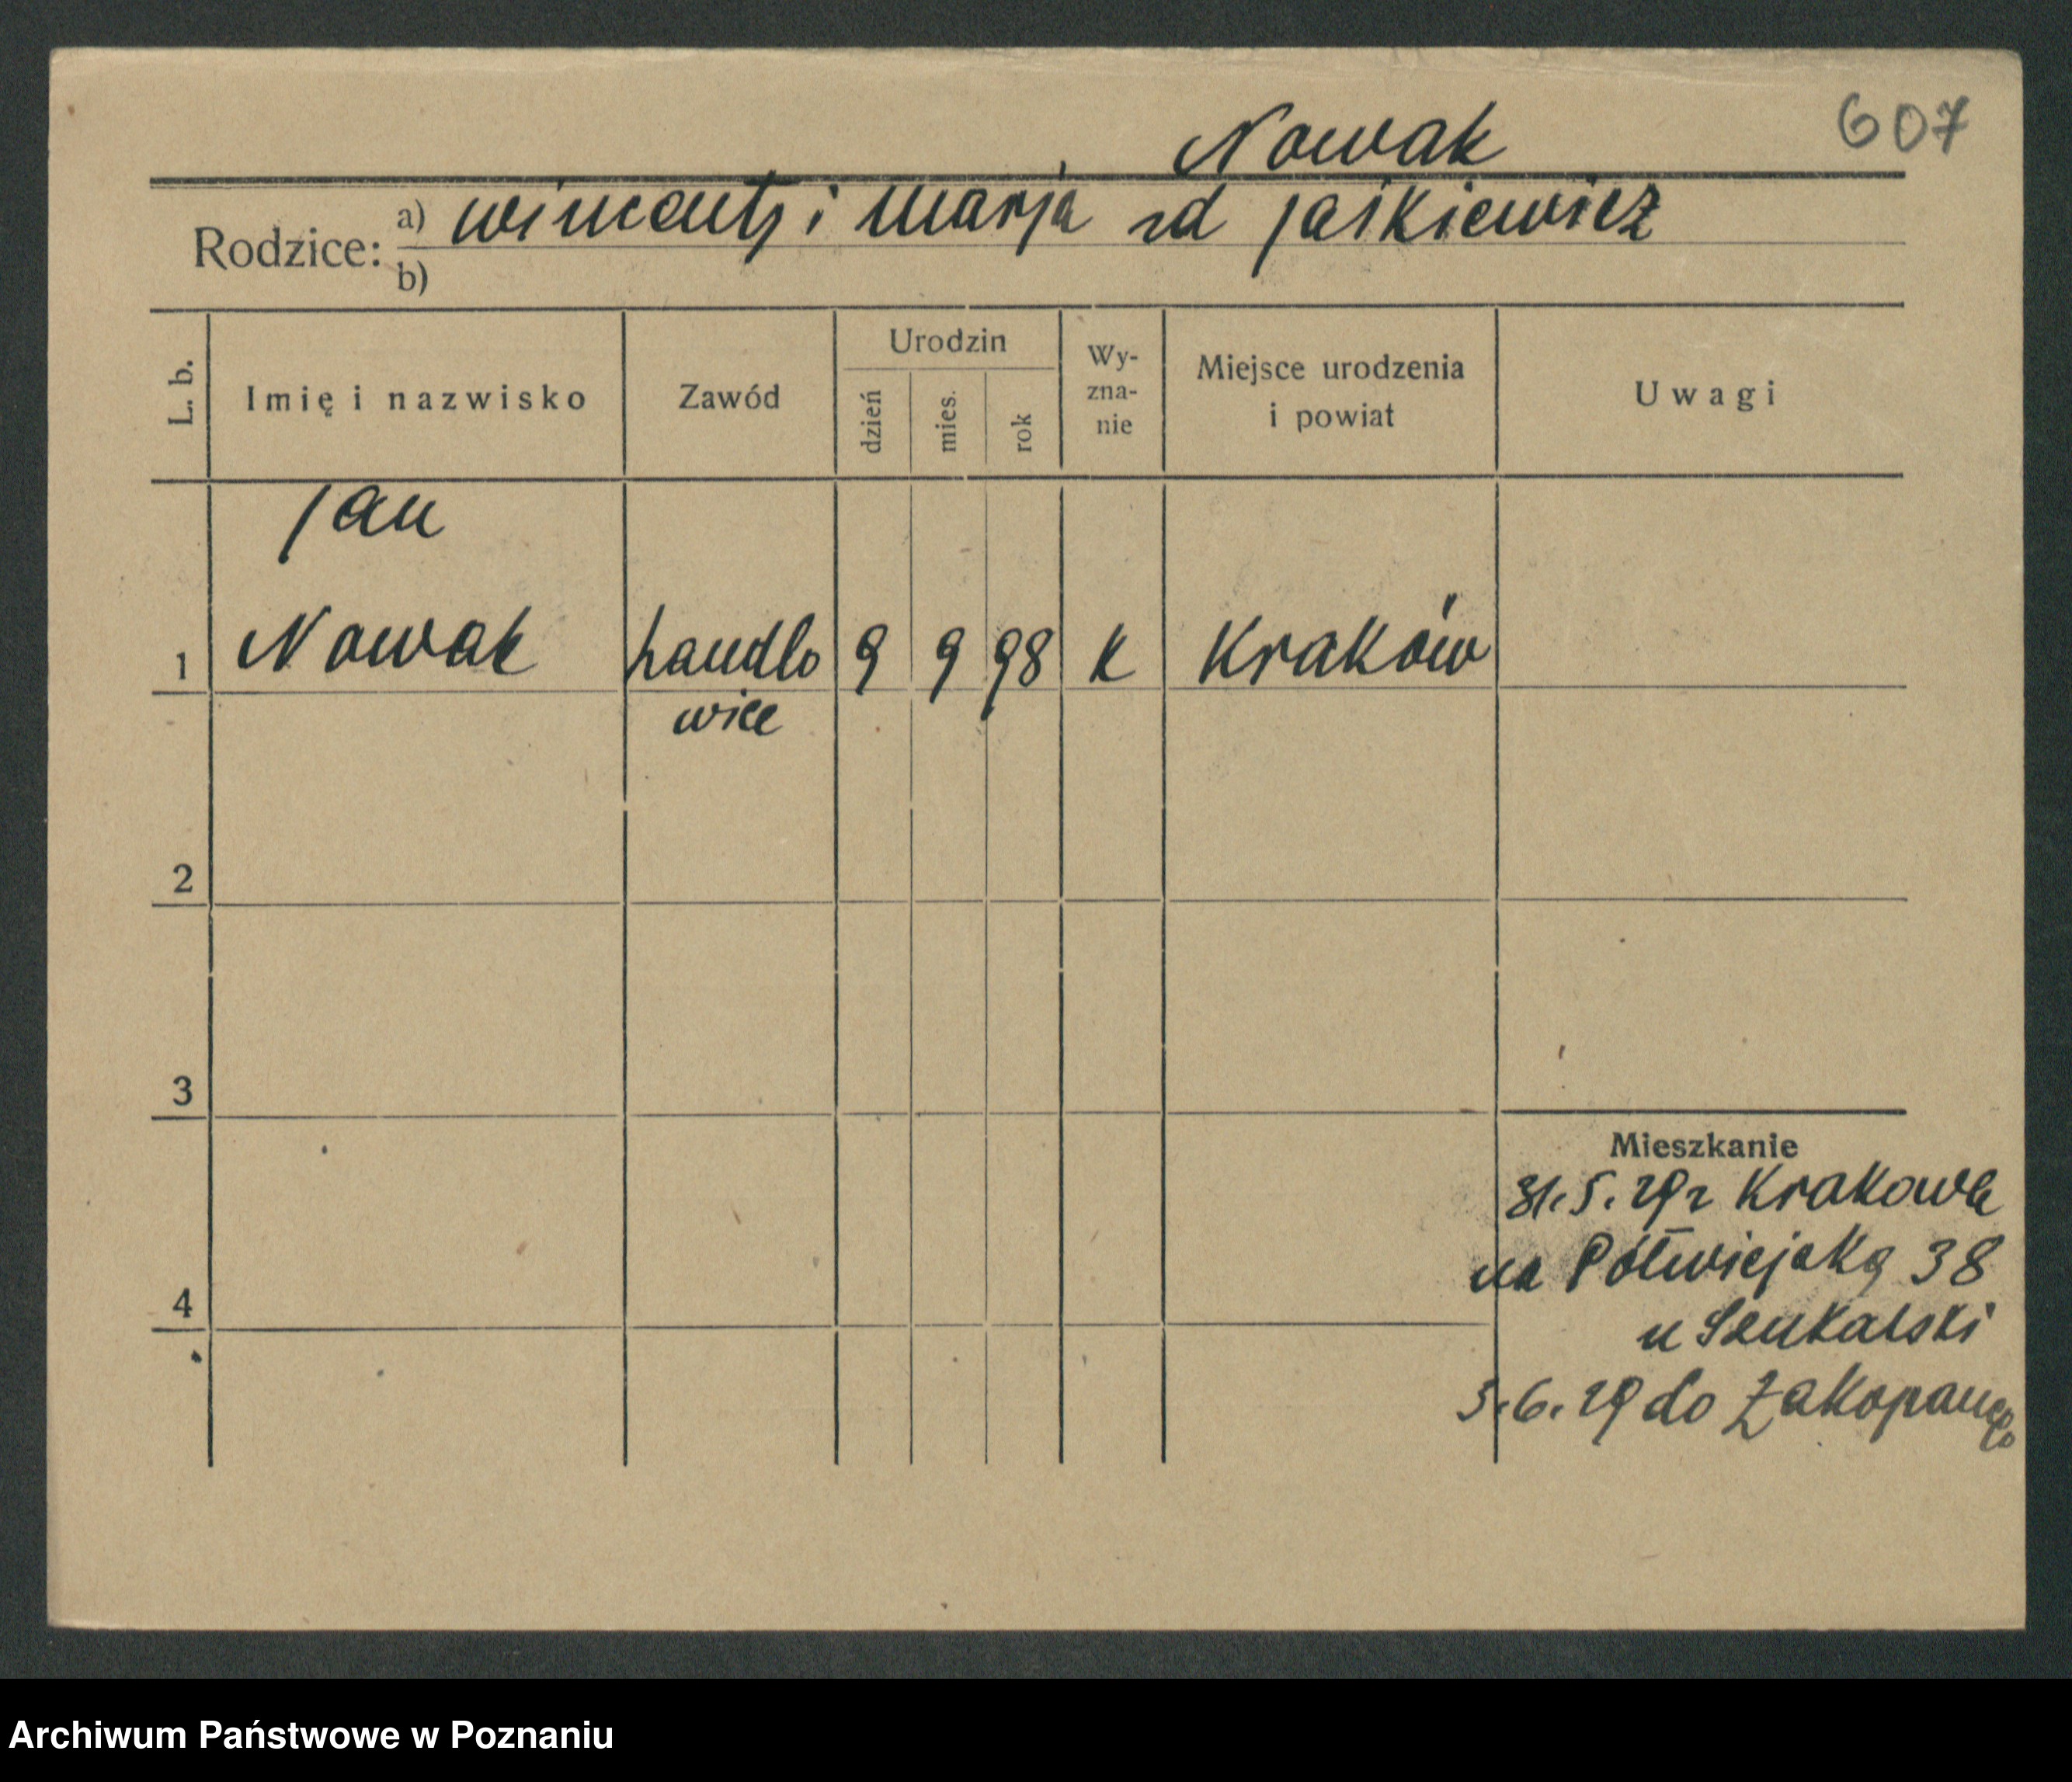 607
Nowak
Rodzice: a) wincenty i Marja zd Jaśkiewicz
b)
L. b.
Imię i nazwisko
Zawód
Urodzin
dzień
mies.
rok
Wy-
zna-
nie
Miejsce urodzenia
i powiat
Uwagi
Jan
1 Nowak handlo 9 9 98 K Kraków
wiec
2
3
4
Mieszkanie
31.5.29 z Krakowa
na Półwiejską 38
u Szukalski
3.6.29 do Zakopanego
Archiwum Państwowe w Poznaniu